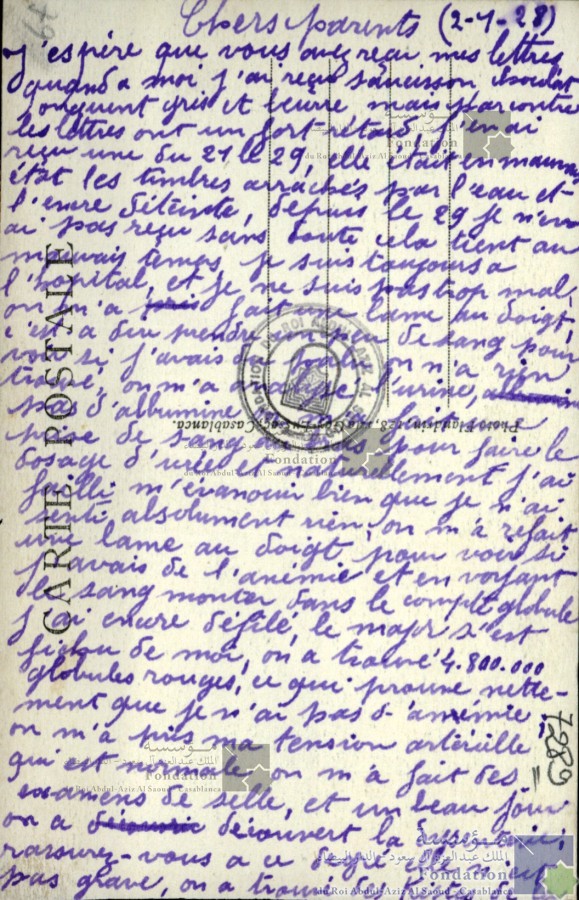 Chers parents (2-1-28)
J'espère que vous avez reçu mes lettres
quand a moi j'ai reçu saucisson chocolat
onguent gris et beurre mais par contre
les lettres ont un fort retard j'en ai
reçu une du 21 le 29, elle était en mauvais
état les timbres arrachés par l'eau et
l'encre déteinte, depuis le 29 je n'en
ai pas reçu sans doute cela tient au
mauvais temps, je suis toujours a
l'hôpital, et je ne suis pas trop mal,
on m'a fait une lame au doigt,
c'est a dire prendre un peu de sang pour
voir si j'avais du on n'a rien
trouvé, on m'a analysé l'urine,
pas d'albumine
prise de sang au bras pour faire le
dosage d'urée et naturellement j'ai
failli m'évanouir bien que je n'ai
senti absolument rien, on m'a refait
une lame au doigt pour voir si
j'avais de l'anémie et en voyant
le sang monter dans le compte globule
j'ai encore défilé, le major s'est
fichu de moi, on a trouvé 4.800.000
globules rouges, ce qui prouve nette-
ment que je n'ai pas d'anémie,
on m'a pris ma tension artérielle
qui est normale, on m'a fait des
examens de selle, et un beau jour
on a découvert la
rassurez-vous a ce
pas grave, on a trouvé
CARTE POSTALE
Photo Flandrin, Casablanca.
7289
67
مؤسسة
الملك عبد العزيز آل سعود - الدار البيضاء
Fondation
du Roi Abdul-Aziz Al Saoud - Casablanca
مؤسسة
Fondation
du Roi Abdul-Aziz Al Saoud - Casablanca
مؤسسة
الملك عبد العزيز آل سعود - الدار البيضاء
Fondation
du Roi Abdul-Aziz Al Saoud - Casablanca
مؤسسة
الملك عبد العزيز آل سعود - الدار البيضاء
Fondation
du Roi Abdul-Aziz Al Saoud - Casablanca
FONDATION DU ROI ABDUL AZIZ AL